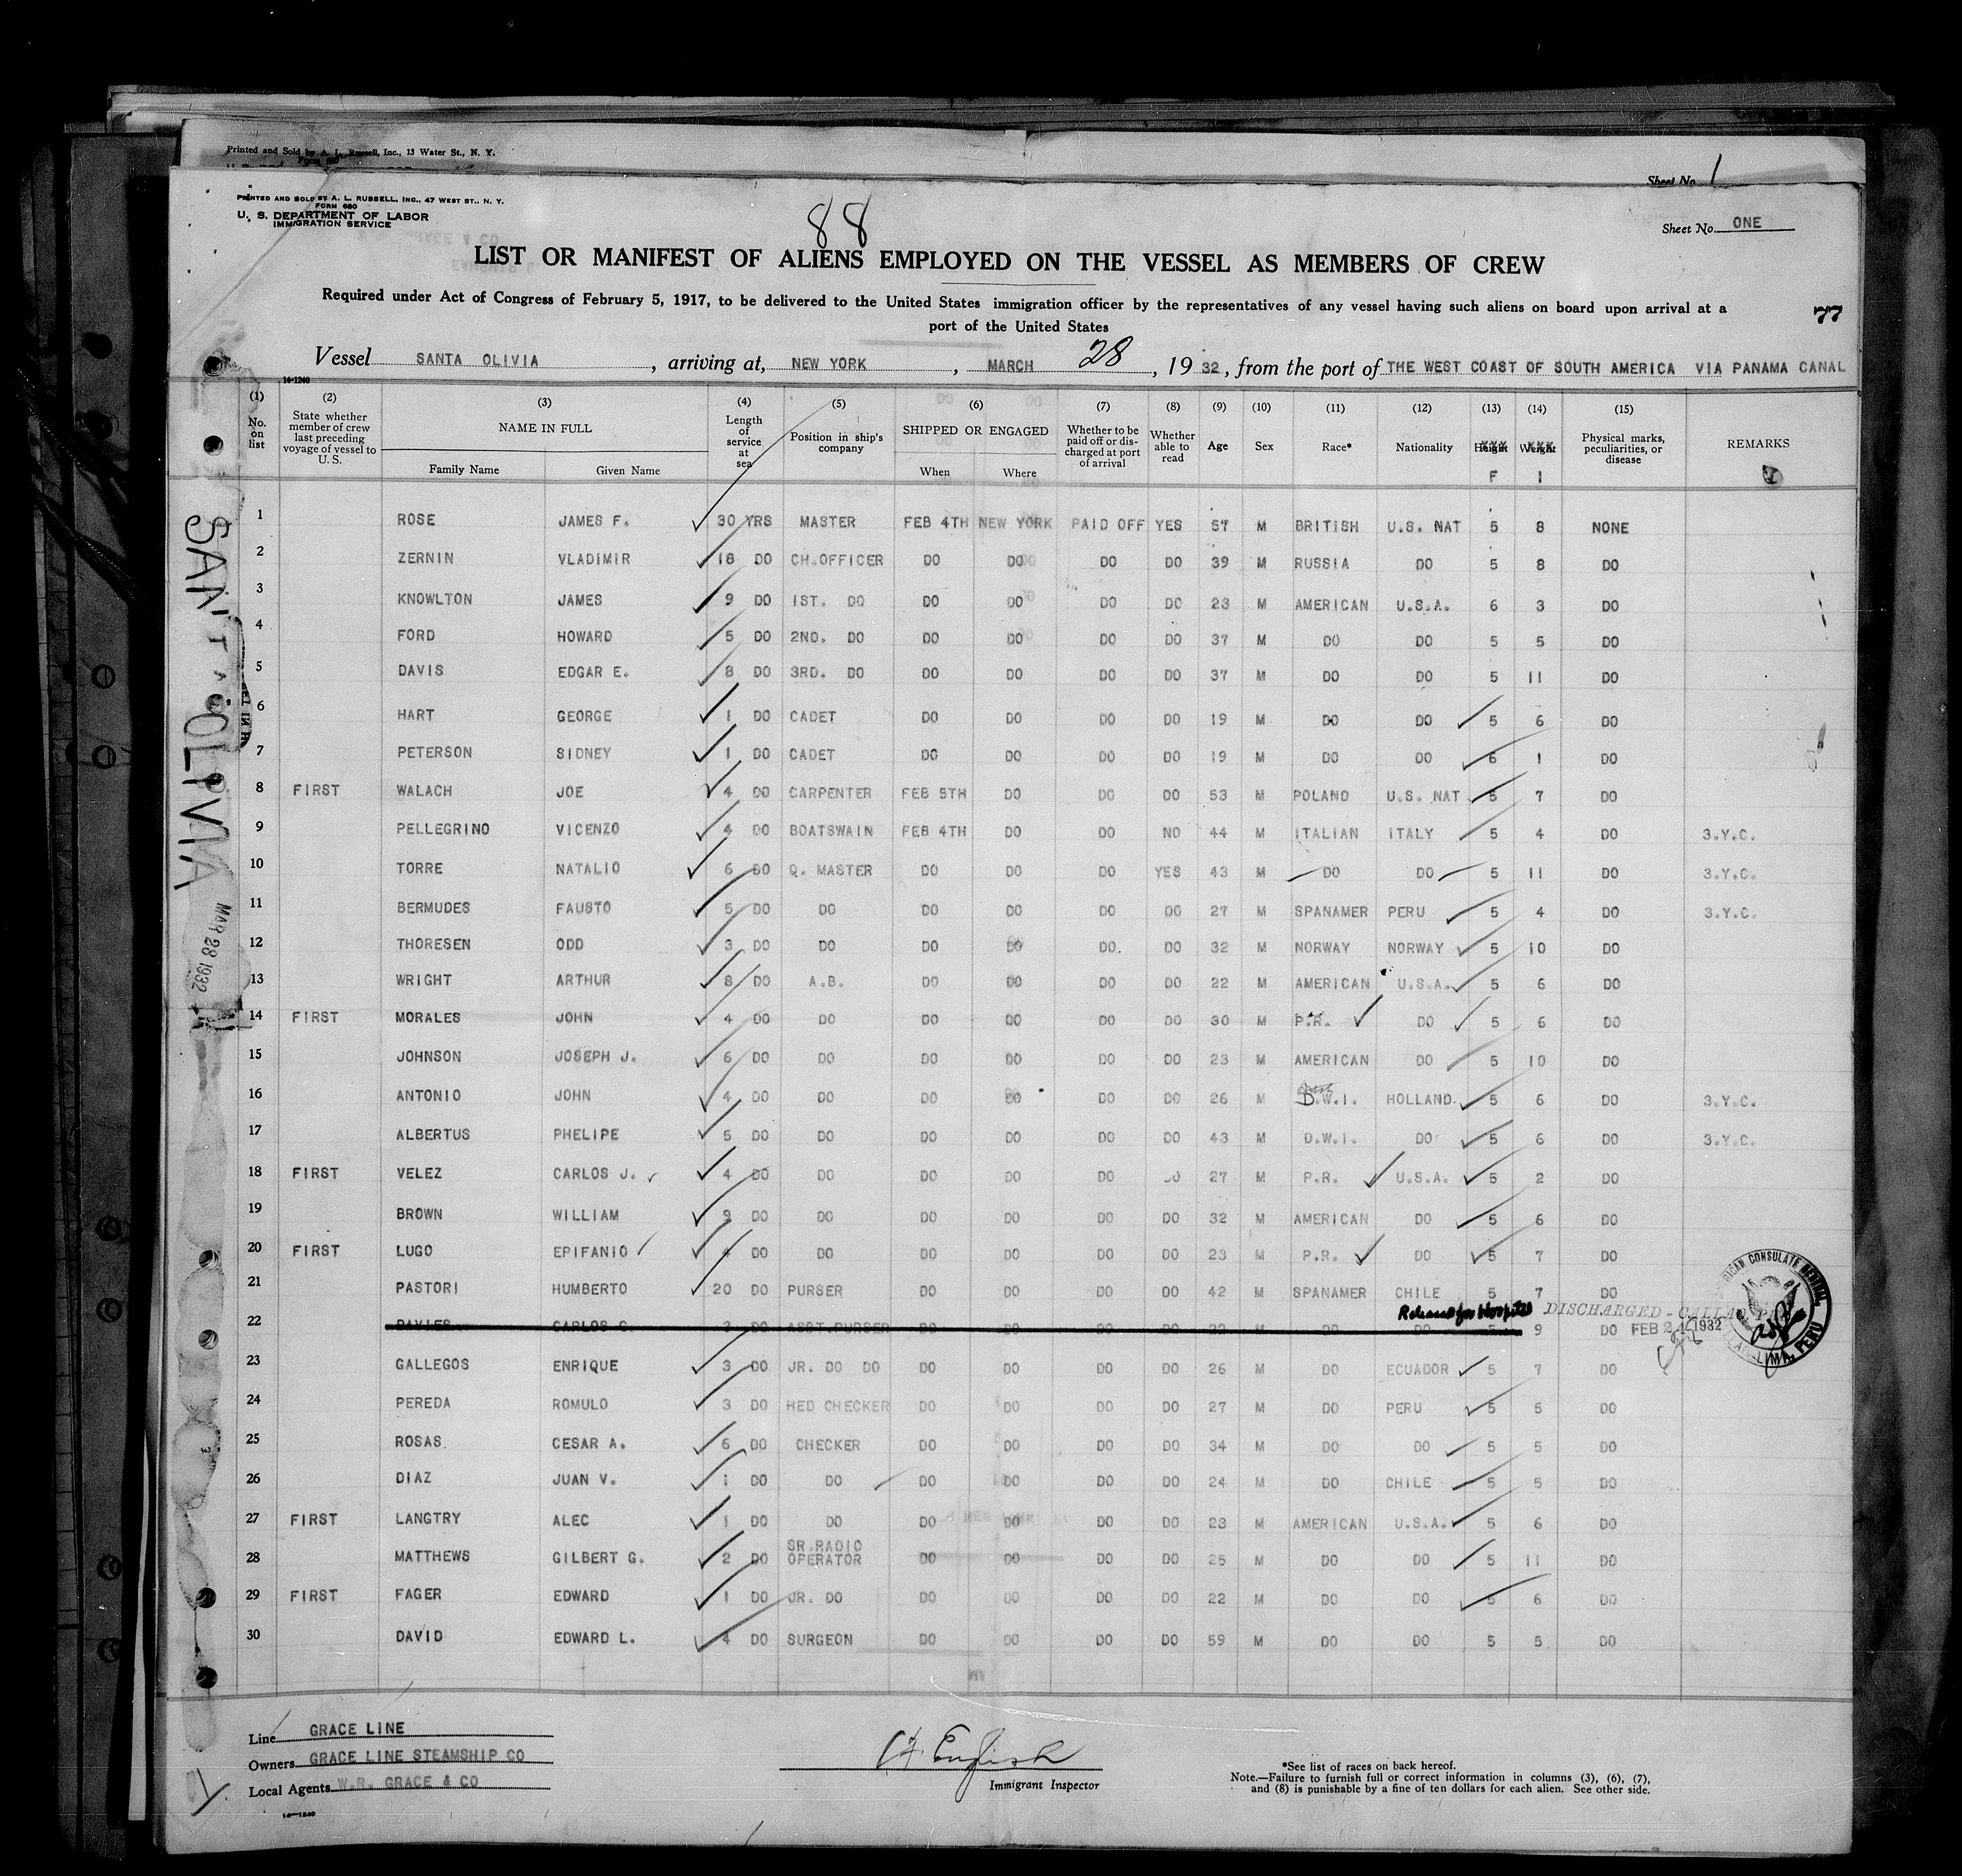 Printed and Sold by A. L. Russell, Inc., 13 Water St., N. Y.
Sheet No. 1
PRINTED AND SOLD BY A. L. RUSSELL, INC., 47 WEST ST., N. Y.
FORM 680
U. S. DEPARTMENT OF LABOR
IMMIGRATION SERVICE
88
Sheet No. ONE
LIST OR MANIFEST OF ALIENS EMPLOYED ON THE VESSEL AS MEMBERS OF CREW
Required under Act of Congress of February 5, 1917, to be delivered to the United States immigration officer by the representatives of any vessel having such aliens on board upon arrival at a
port of the United States
77
Vessel SANTA OLIVIA, arriving at, NEW YORK, MARCH 28, 1932, from the port of THE WEST COAST OF SOUTH AMERICA VIA PANAMA CANAL
14-1240
(1) No. on list (2) State whether member of crew last preceding voyage of vessel to U. S. (3) NAME IN FULL Family Name Given Name (4) Length of service at sea (5) Position in ship's company (6) SHIPPED OR ENGAGED When Where (7) Whether to be paid off or discharged at port of arrival (8) Whether able to read (9) Age (10) Sex (11) Race* (12) Nationality (13) Height F (14) Weight I (15) Physical marks, peculiarities, or disease REMARKS
1 ROSE JAMES F. 30 YRS MASTER FEB 4TH NEW YORK PAID OFF YES 57 M BRITISH U.S. NAT 5 8 NONE
2 ZERNIN VLADIMIR 18 DO CH.OFFICER DO DO DO DO 39 M RUSSIA DO 5 8 DO
3 KNOWLTON JAMES 9 DO 1ST. DO DO DO DO DO 23 M AMERICAN U.S.A. 6 3 DO
4 FORD HOWARD 5 DO 2ND. DO DO DO DO DO 37 M DO DO 5 5 DO
5 DAVIS EDGAR E. 8 DO 3RD. DO DO DO DO DO 37 M DO DO 5 11 DO
6 HART GEORGE 1 DO CADET DO DO DO DO 19 M DO DO 5 6 DO
7 PETERSON SIDNEY 1 DO CADET DO DO DO DO 19 M DO DO 6 1 DO
8 FIRST WALACH JOE 4 DO CARPENTER FEB 5TH DO DO DO 53 M POLAND U.S. NAT 5 7 DO
9 PELLEGRINO VICENZO 4 DO BOATSWAIN FEB 4TH DO DO NO 44 M ITALIAN ITALY 5 4 DO 3.Y.C.
10 TORRE NATALIO 6 DO Q. MASTER DO DO DO YES 43 M DO DO 5 11 DO 3.Y.C.
11 BERMUDES FAUSTO 5 DO DO DO DO DO DO 27 M SPANAMER PERU 5 4 DO 3.Y.C.
12 THORESEN ODD 3 DO DO DO DO DO. DO 32 M NORWAY NORWAY 5 10 DO
13 WRIGHT ARTHUR 8 DO A.B. DO DO DO DO 22 M AMERICAN U.S.A. 5 6 DO
14 FIRST MORALES JOHN 4 DO DO DO DO DO DO 30 M P.R. DO 5 6 DO
15 JOHNSON JOSEPH J. 6 DO DO DO DO DO DO 23 M AMERICAN DO 5 10 DO
16 ANTONIO JOHN 4 DO DO DO DO DO DO 26 M D.W.I. HOLLAND. 5 6 DO 3.Y.C.
17 ALBERTUS PHELIPE 5 DO DO DO DO DO DO 43 M D.W.I. DO 5 6 DO 3.Y.C.
18 FIRST VELEZ CARLOS J. 4 DO DO DO DO DO DO 27 M P.R. U.S.A. 5 2 DO
19 BROWN WILLIAM 9 DO DO DO DO DO DO 32 M AMERICAN DO 5 6 DO
20 FIRST LUGO EPIFANIO 4 DO DO DO DO DO DO 23 M P.R. DO 5 7 DO
21 PASTORI HUMBERTO 20 DO PURSER DO DO DO DO 42 M SPANAMER CHILE 5 7 DO
Released for Hospital DISCHARGED-CALLAO
22 DAVIES CARLOS C. 3 DO ASST.PURSER DO DO DO DO DO DO 5 9 DO FEB 24 1932
AMERICAN CONSULATE GENERAL CALLAO-LIMA, PERU
23 GALLEGOS ENRIQUE 3 DO JR. DO DO DO DO DO DO 26 M DO ECUADOR 5 7 DO
24 PEREDA ROMULO 3 DO HED CHECKER DO DO DO DO 27 M DO PERU 5 5 DO
25 ROSAS. CESAR A. 6 DO CHECKER DO DO DO DO 34 M DO DO 5 5 DO
26 DIAZ JUAN V. 1 DO DO DO DO DO DO 24 M DO CHILE 5 5 DO
27 FIRST LANGTRY ALEC 1 DO DO DO DO DO DO 23 M AMERICAN U.S.A. 5 6 DO
28 MATTHEWS GILBERT G. 2 DO SR.RADIO OPERATOR DO DO DO DO 25 M DO DO 5 11 DO
29 FIRST FAGER EDWARD 1 DO JR. DO DO DO DO DO 22 M DO DO 5 6 DO
30 DAVID EDWARD L. 4 DO SURGEON DO DO DO DO 59 M DO DO 5 5 DO
SANTA OLIVIA
MAR 28 1932
Line GRACE LINE
Owners GRACE LINE STEAMSHIP CO
Local Agents W.R. GRACE & CO
14-1240
English
Immigrant Inspector
*See list of races on back hereof.
Note.—Failure to furnish full or correct information in columns (3), (6), (7),
and (8) is punishable by a fine of ten dollars for each alien. See other side.